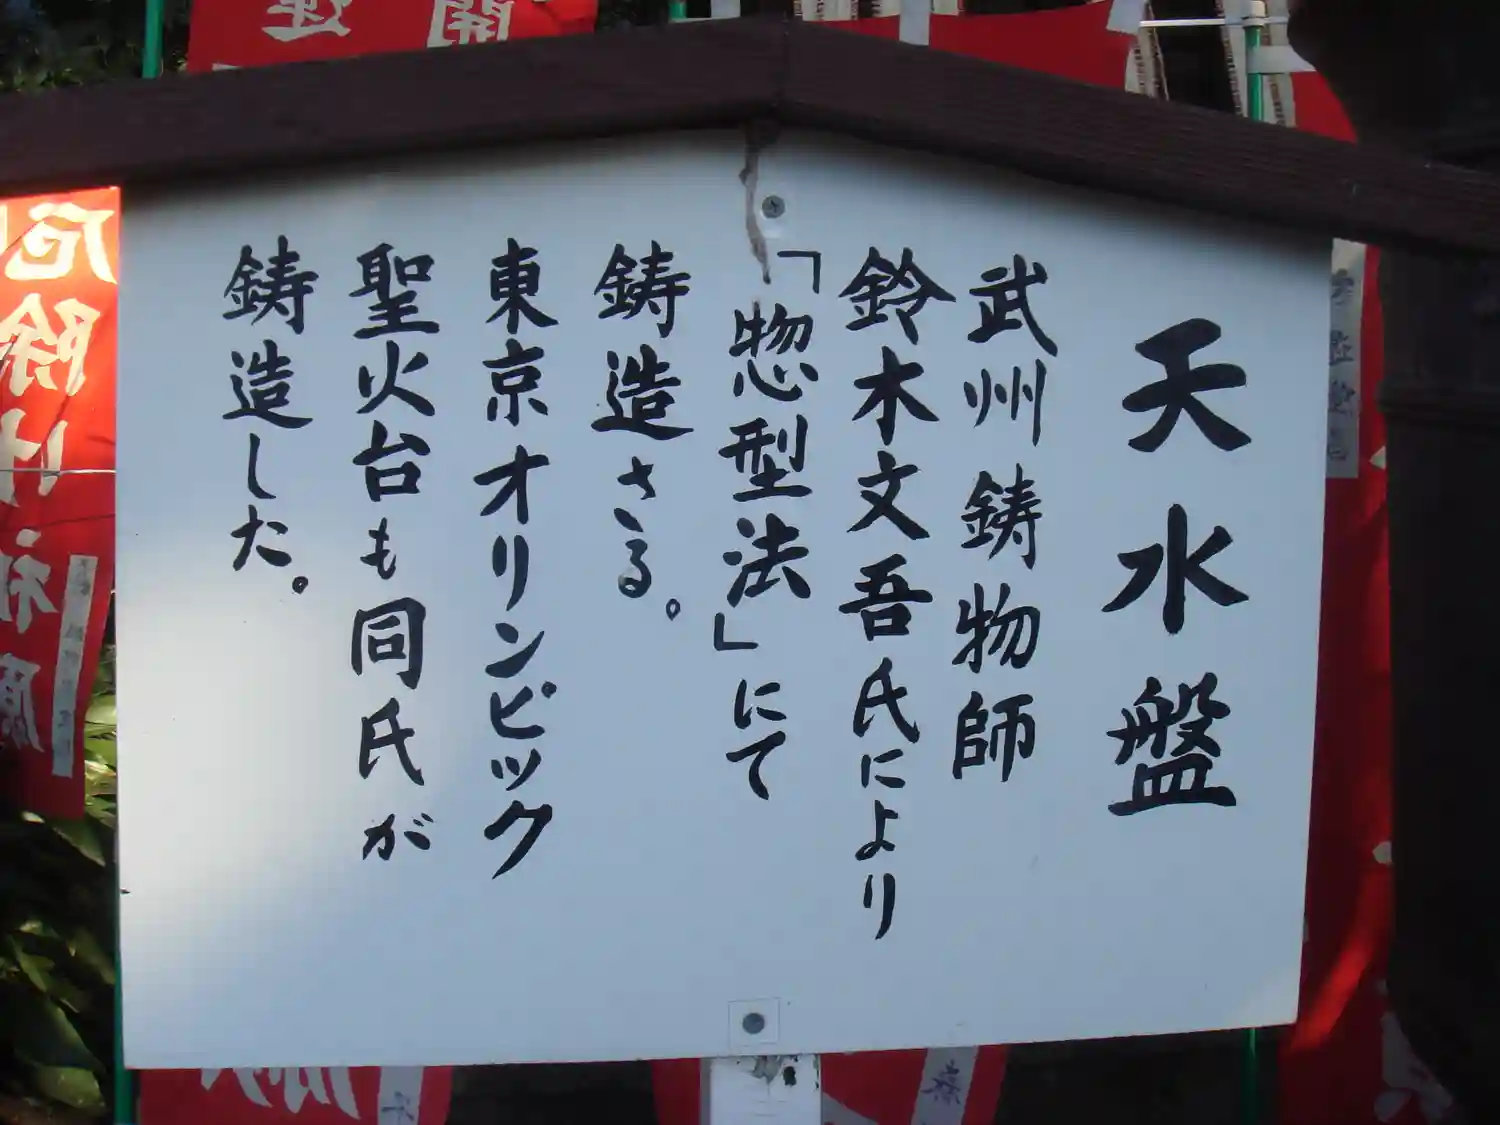 天水盤
武州鋳物師
鈴木文吾氏により
「惣型法」にて
鋳造さる。
東京オリンピック
聖火台も同氏が
鋳造した。
厄除け祖